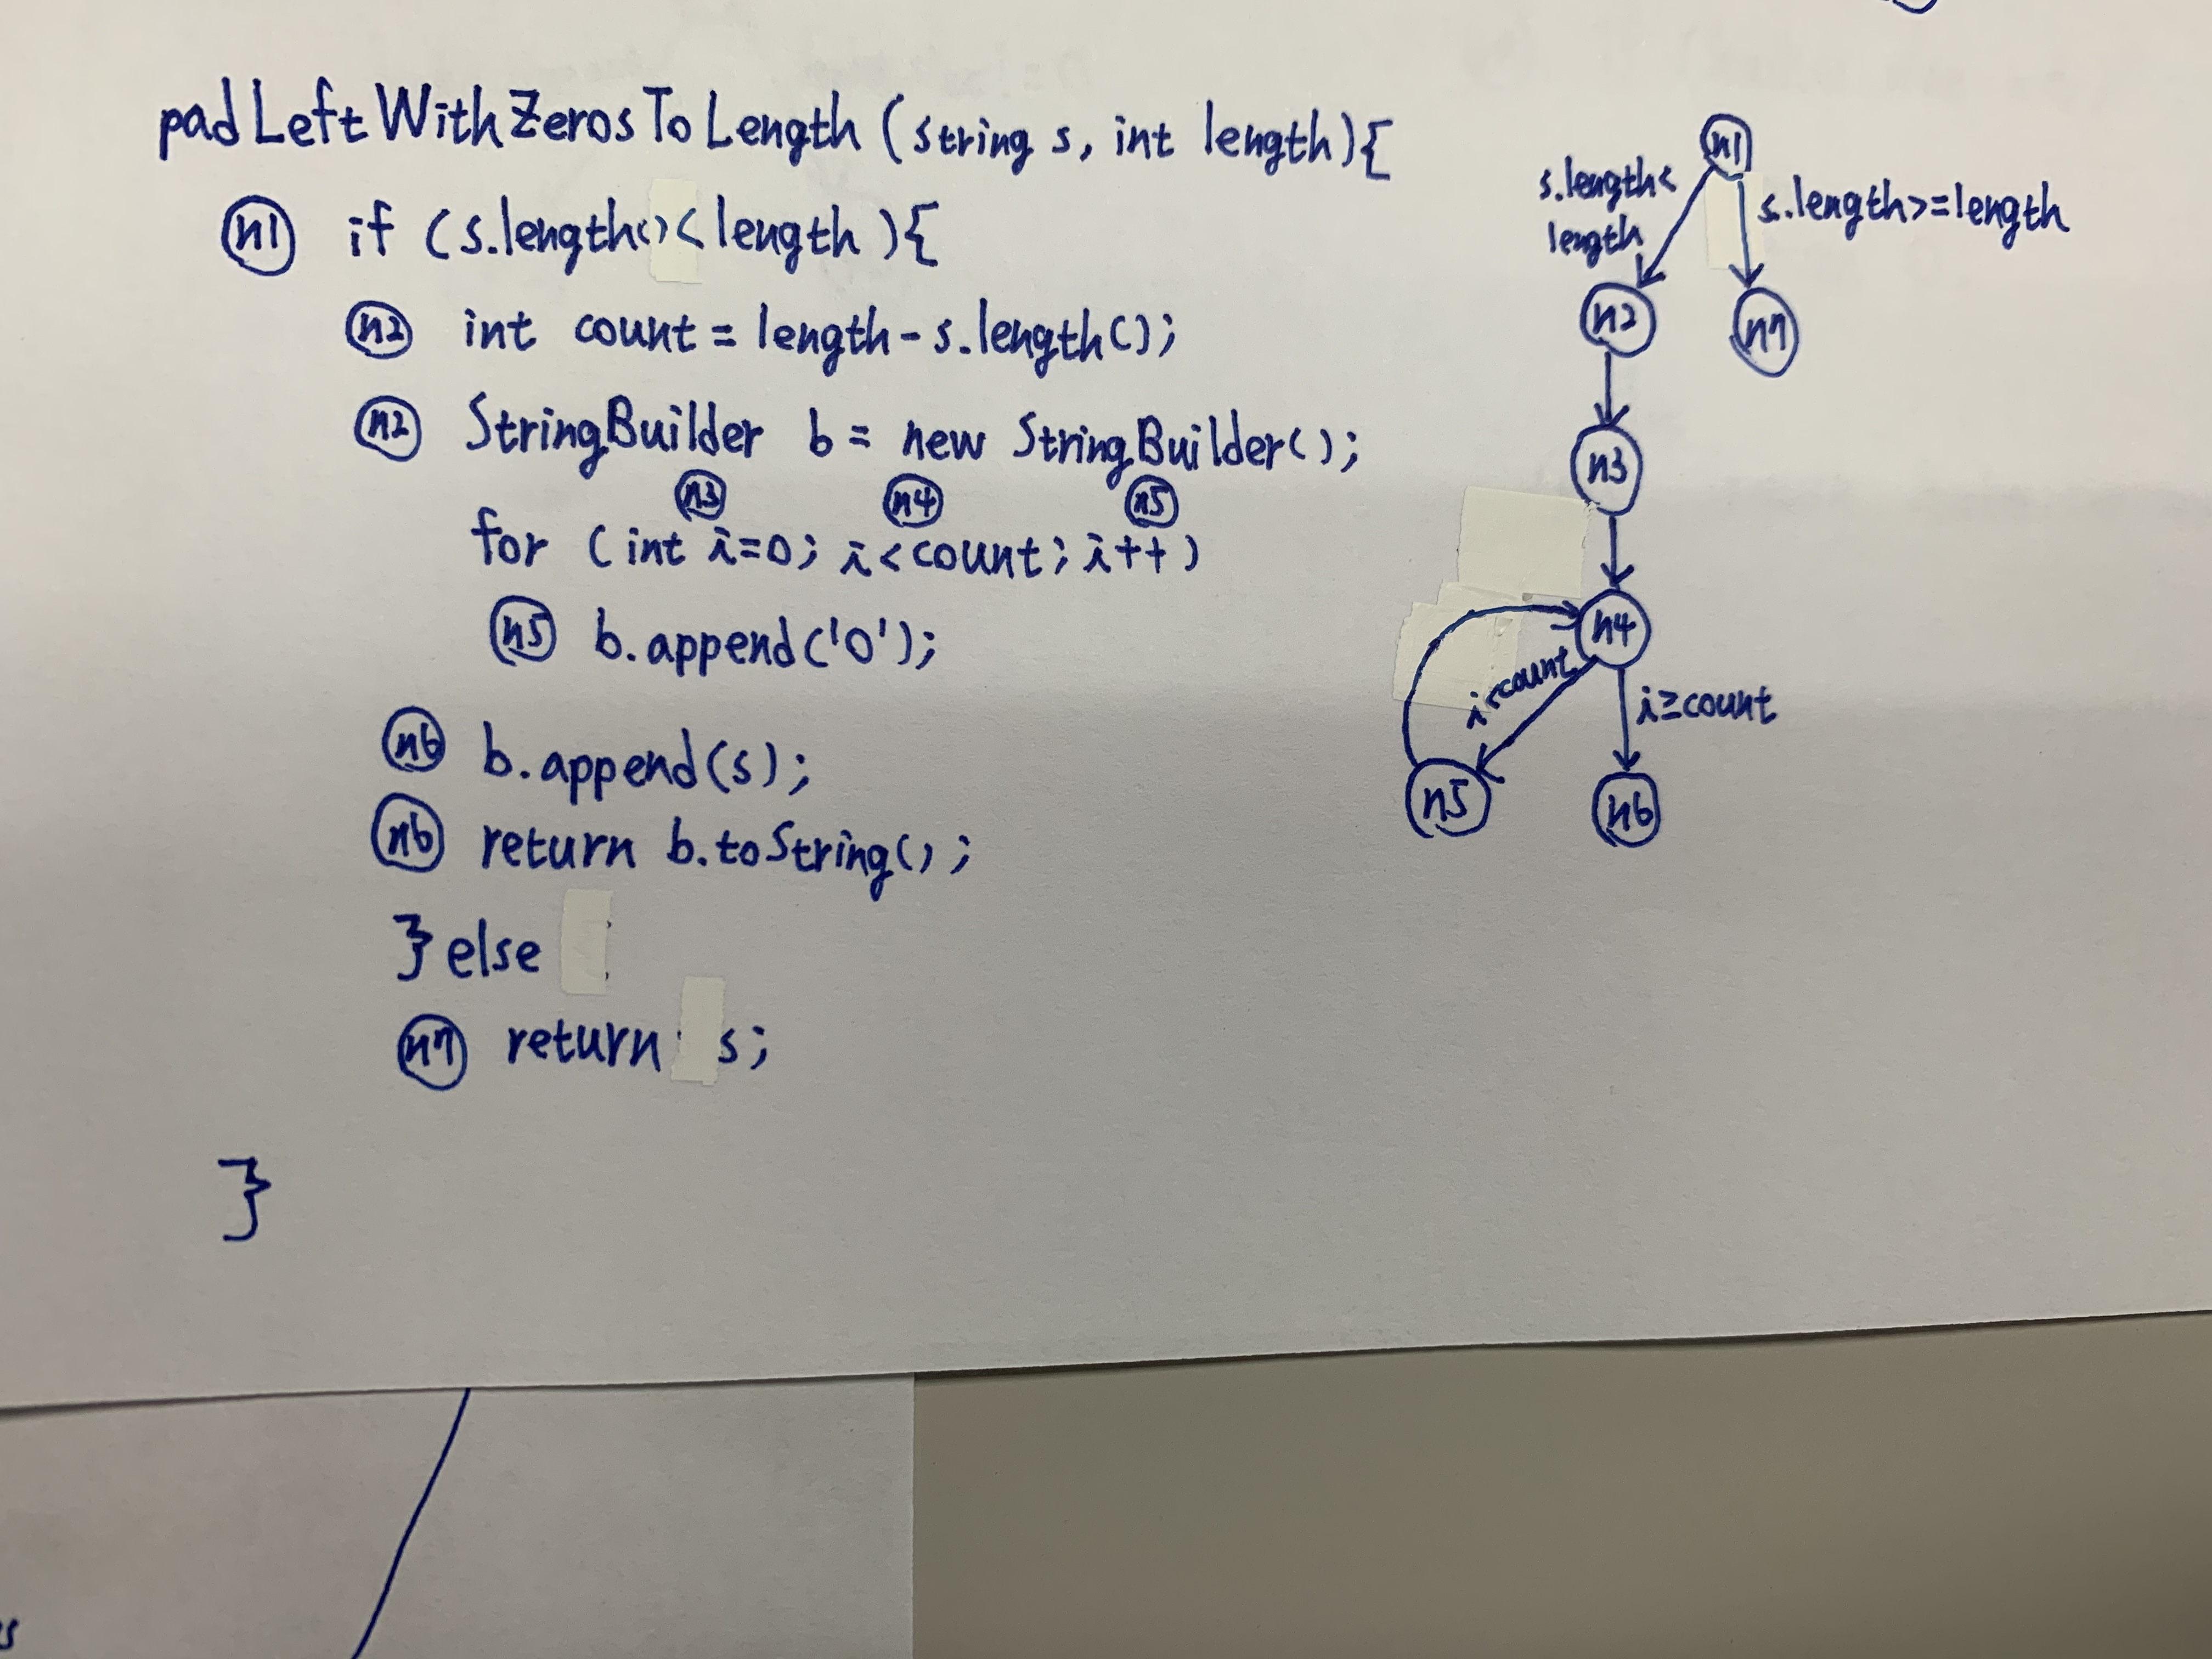 padLeftWithZerosToLength (string s, int length){
n1 if (s.length()<length){
n2 int count = length-s.length();
n2 StringBuilder b = new StringBuilder();
n3 n4 n5
for (int i=0; i<count; i++)
n5 b.append('0');
n6 b.append(s);
n6 return b.toString();
}else
n7 return s;
}
n1
s.length<
length
s.length>=length
n2 n7
n3
n4
i<count
i≥count
n5 n6
s